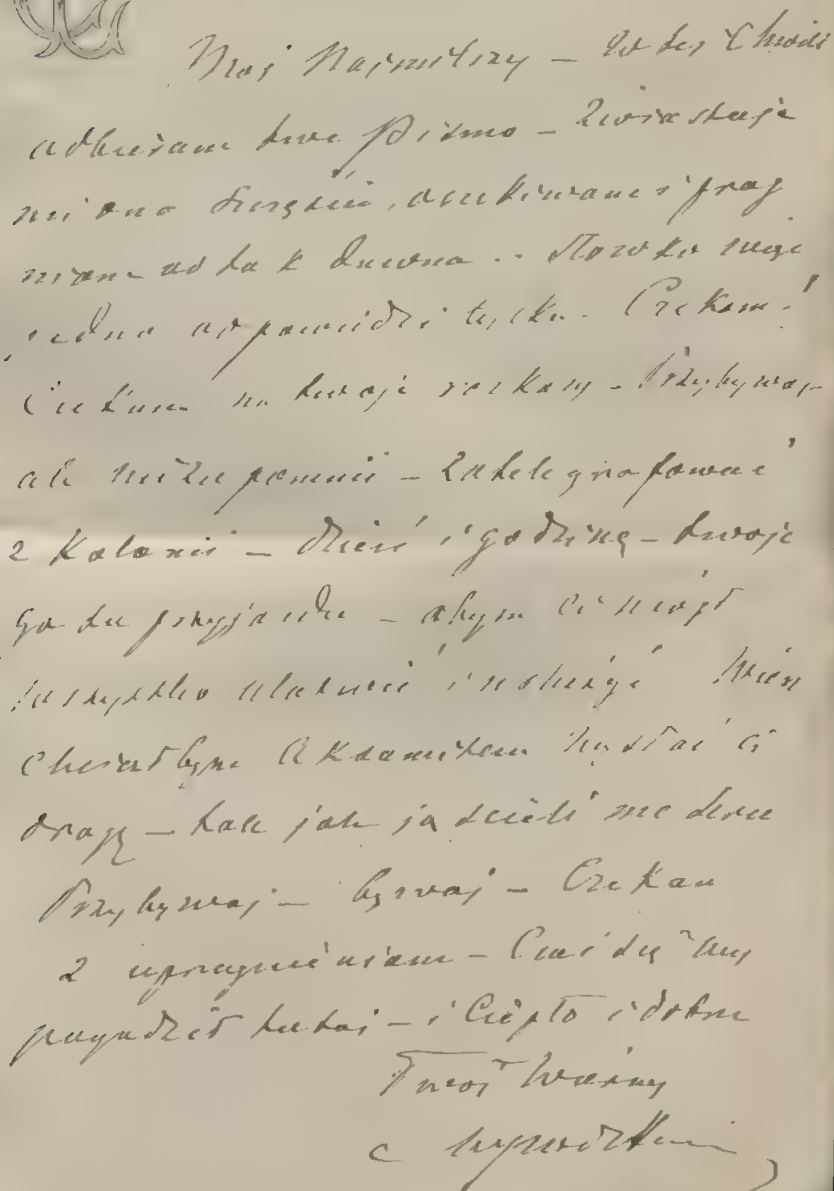 Mój Najmilszy – W tej Chwili
odbieram twe Pismo – Zwiastuje
mi ono Szczęście, oczekiwane i prag
nione od tak dawna .. Słowko więc
jedno odpowiedzi tylko. Czekam!
Czekam na twoje rozkazy – Przybywaj –
ale nie zapomnij – Zatelegrafować
z Kolonii – dzień i godzinę – twoje
go tu przyjazdu – abym Ci mógł
wszystko ułatwić i
chciałbym Aksamitem Ci
drogę – tak jak ją ściele me serce
Przybywaj – bywaj – Czekam
z upragnieniem – Czas się
pogodził tutaj – i Ciepło i dobrze
Twój Wierny